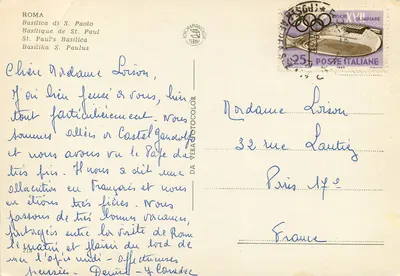 ROMA
Basilica di S. Paolo
Basilique de St. Paul
St. Paul's Basilica
Basilika S. Paulus
Chère Madame Loison,
J'ai bien pensé à vous, hier
tout particulièrement. Nous
sommes allés à Castelgandolfo
et nous avons vu le Pape de
très près. Il nous a dit une
allocution en français et nous
en étions très fiers. Nous
passons de très bonnes vacances,
partagées entre la visite de Rome
le matin et plaisir du bord de
mer l'après midi - affectueuses
pensées -
DA VERA FOTOCOLOR
GIOCHI
XVII
L.25
POSTE ITALIANE
Madame Loison
32 rue Lantiez
Paris 17e
France